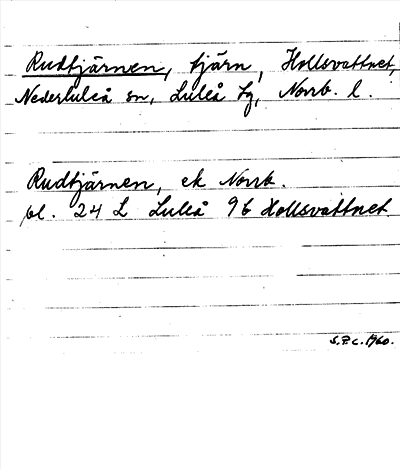 Rudtjärnen, tjärn, Hollsvattnet,
Nederluleå sn, Luleå tg, Norrb. l.
Rudtjärnen, ek Norrb.
bl. 24 L Luleå 9b Hollsvattnet.
S.P.C. 1960.